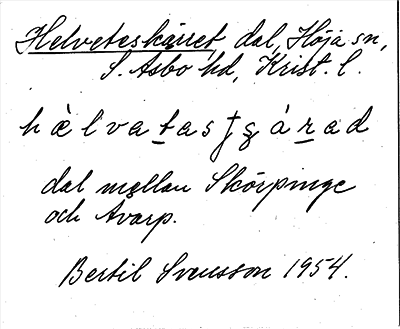 Helveteskärret, dal, Höja sn,
S. Åsbo hd, Krist. l.
dal mellan Skörpinge
och Avarp.
Bertil Svensson 1954.